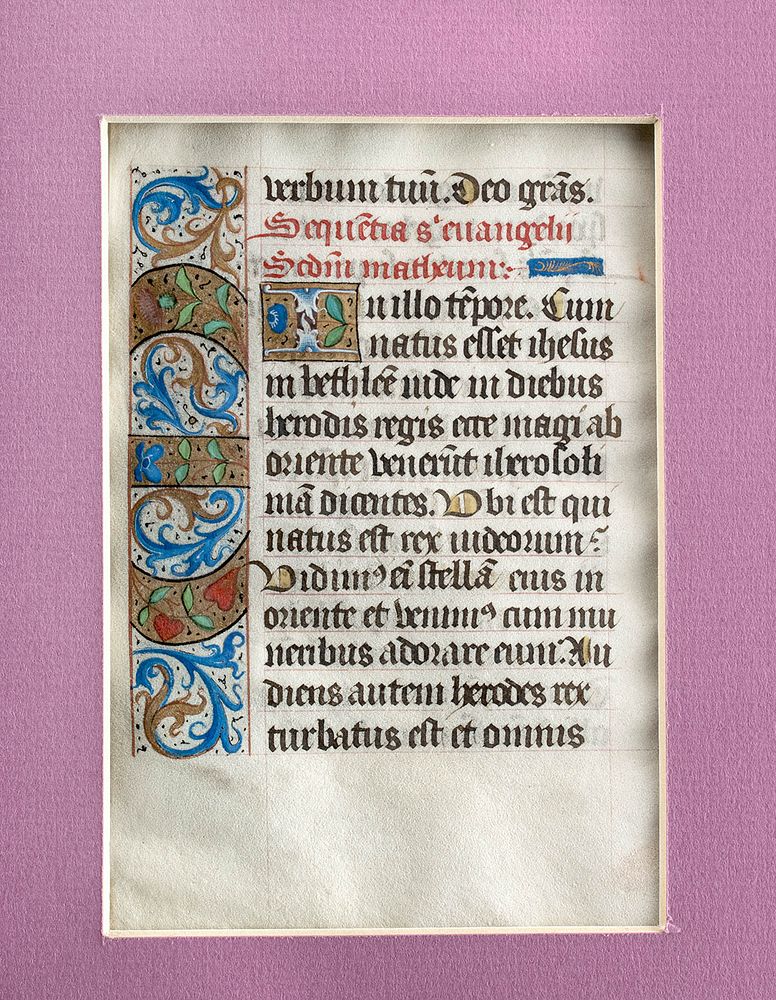 verbum tuū. Deo grās.
Sequētia s' euangelii
Scdm̄ matheum:·
In illo tēpore. Cum
natus esset ihesus
in bethleē iude in diebus
herodis regis ecce magi ab
oriente venerūt iherosoli
mā dicentes. Ubi est qui
natus est rex iudeorum?
Vidimꝰ eī stellā eius in
oriente et venimꝰ cum mu
neribus adorare eum. Au
diens autem herodes rex
turbatus est et omnis